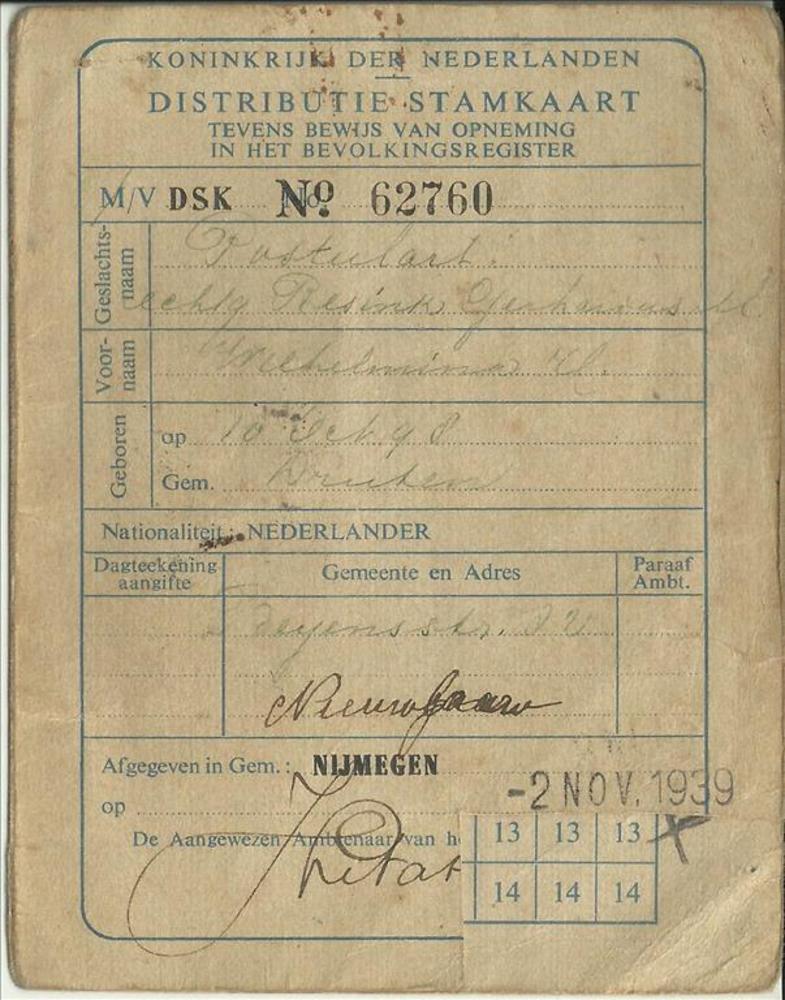 KONINKRIJK DER NEDERLANDEN
DISTRIBUTIE-STAMKAART
TEVENS BEWIJS VAN OPNEMING
IN HET BEVOLKINGSREGISTER
M/V DSK No. 62760
Geslachts-
naam
Postulart.
echtg Resink
Voor-
naam
Wilhelmina H.
Geboren
op 10 Oct. 98
Gem. Druten
Nationaliteit: NEDERLANDER
Dagteekening
aangifte
Gemeente en Adres
Paraaf
Ambt.
Afgegeven in Gem.: NIJMEGEN
op -2 NOV. 1939
De Aangewezen Ambtenaar van h
13 13 13 X
14 14 14